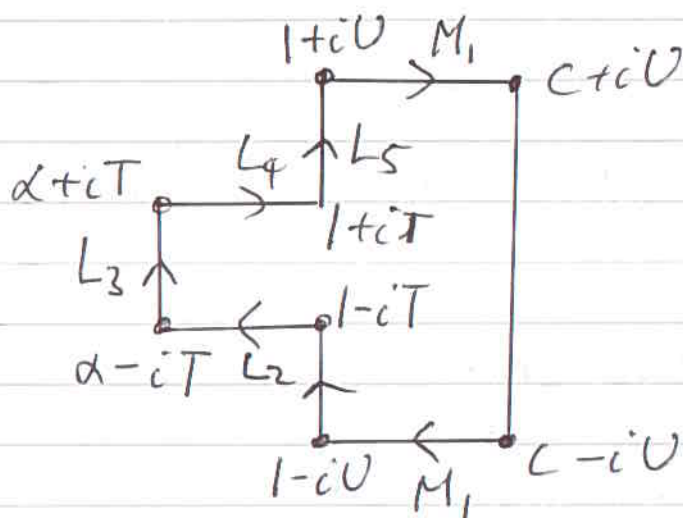 1+iU M₁ C+iU
L₄ L₅
α+iT
1+iT
L₃
1-iT
α-iT L₂
1-iU M₁ C-iU